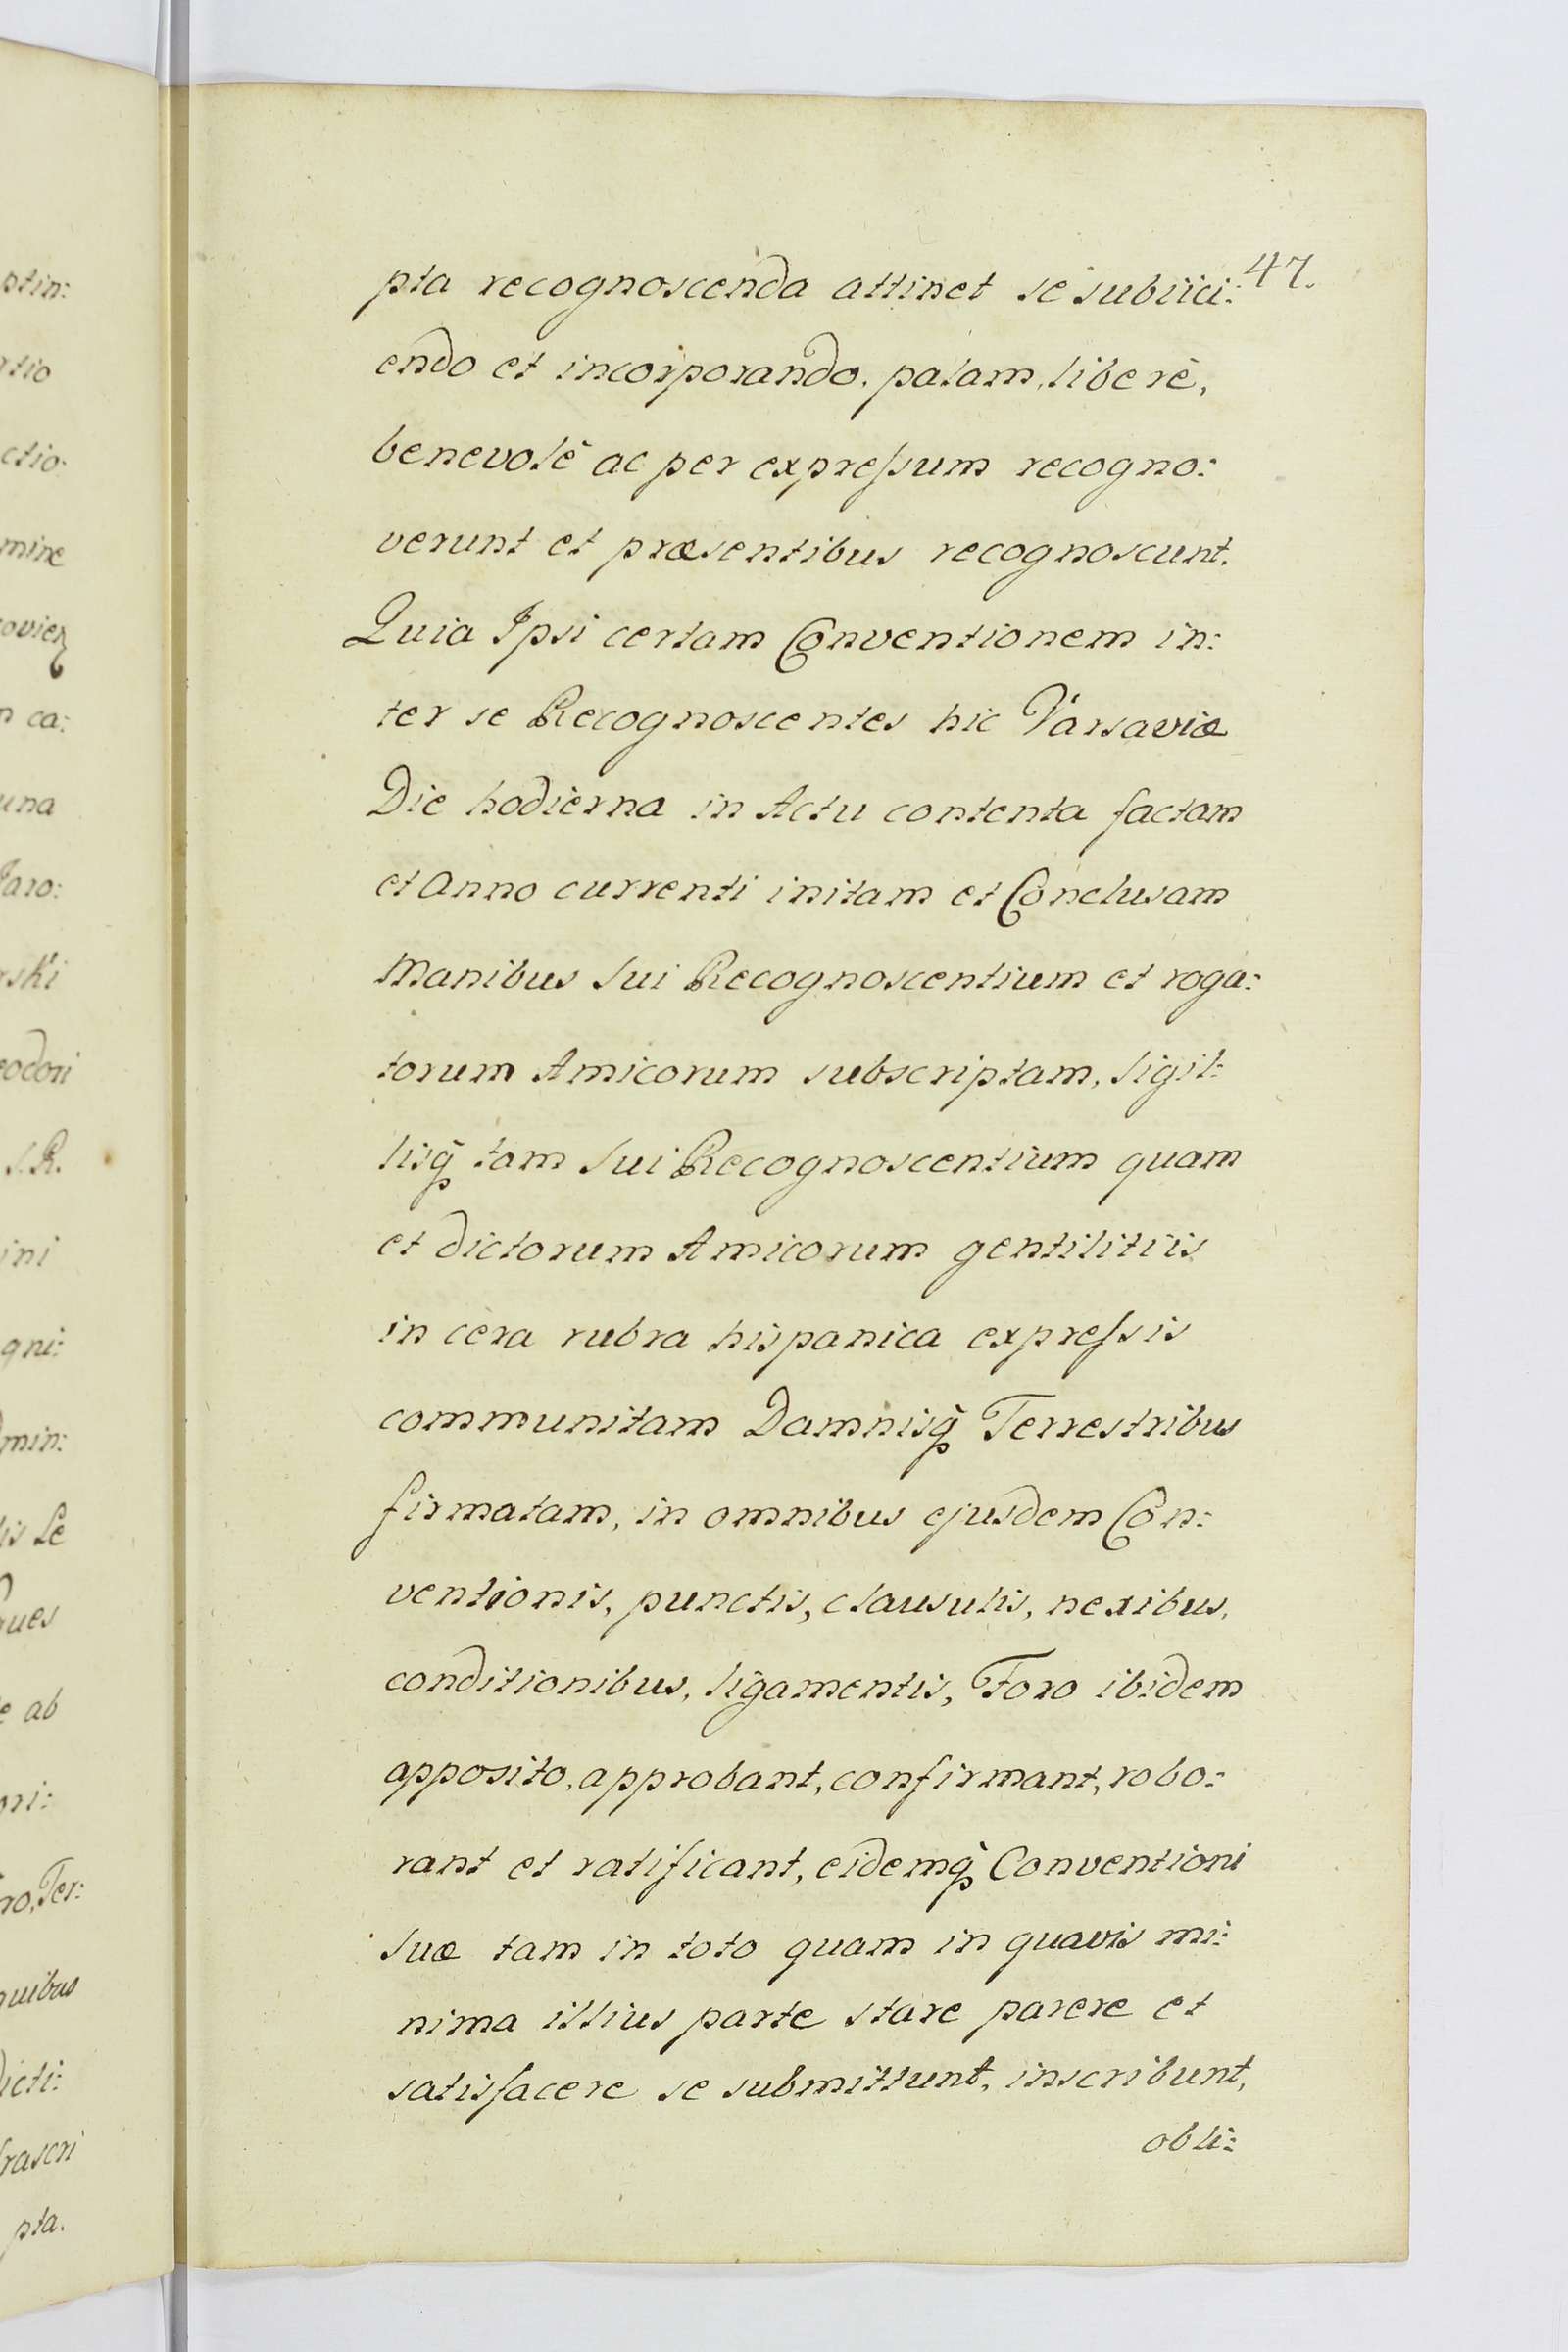 ptin:
tio
ctio
mine
ca:
una
Jaro:
rski
eodori
S.R.
ini
gni:
min:
lis Le
ques
ab
ori:
ro, Ter:
quibus
dicti:
frascri
pta.
47.
pta recognoscenda attinet se subiici:
endo et incorporando. palam, liberè,
benevolè ac per expreſsum recogno:
verunt et præsentibus recognoscunt.
Quia Ipsi certam Conventionem in:
ter se Recognoscentes hic Varsaviæ
Die hodierna in Actu contenta factam
et Anno currenti initam et Conclusam
Manibus Sui Recognoscentium et roga:
torum Amicorum subscriptam, Sigil:
lisq̃ tam Sui Recognoscentium quam
et dictorum Amicorum gentilitiis
in cera rubra hispanica expreſsis
communitam Damnisq̃ Terrestribus
firmatam, in omnibus ejusdem Con:
ventionis, punctis, clausulis, nexibus,
conditionibus, ligamentis, Foro ibidem
apposito, approbant, confirmant, robo:
rant et ratificant, eidemq̃ Conventioni
Suæ tam in toto quam in quavis mi:
nima illius parte stare parere et
satisfacere se submittunt, inscribunt,
obli: